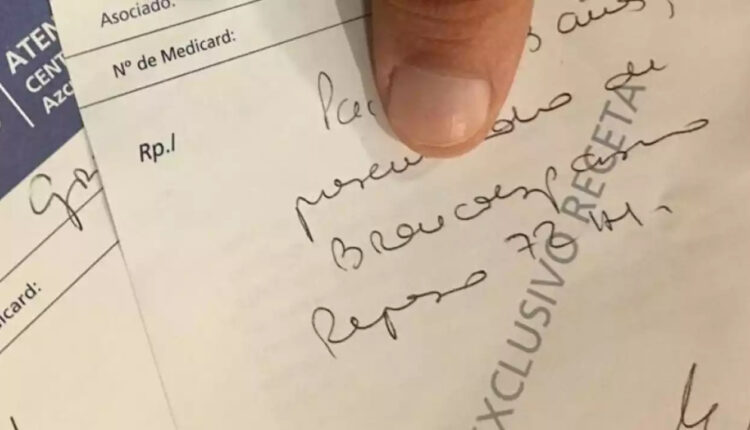 ATEN
CENT
Azc
Asociado:
Nº de Medicard:
Rp./
3 años,
de
Broncoespasmo
Reposo 72 Hs.
EXCLUSIVO RECETA
icard: